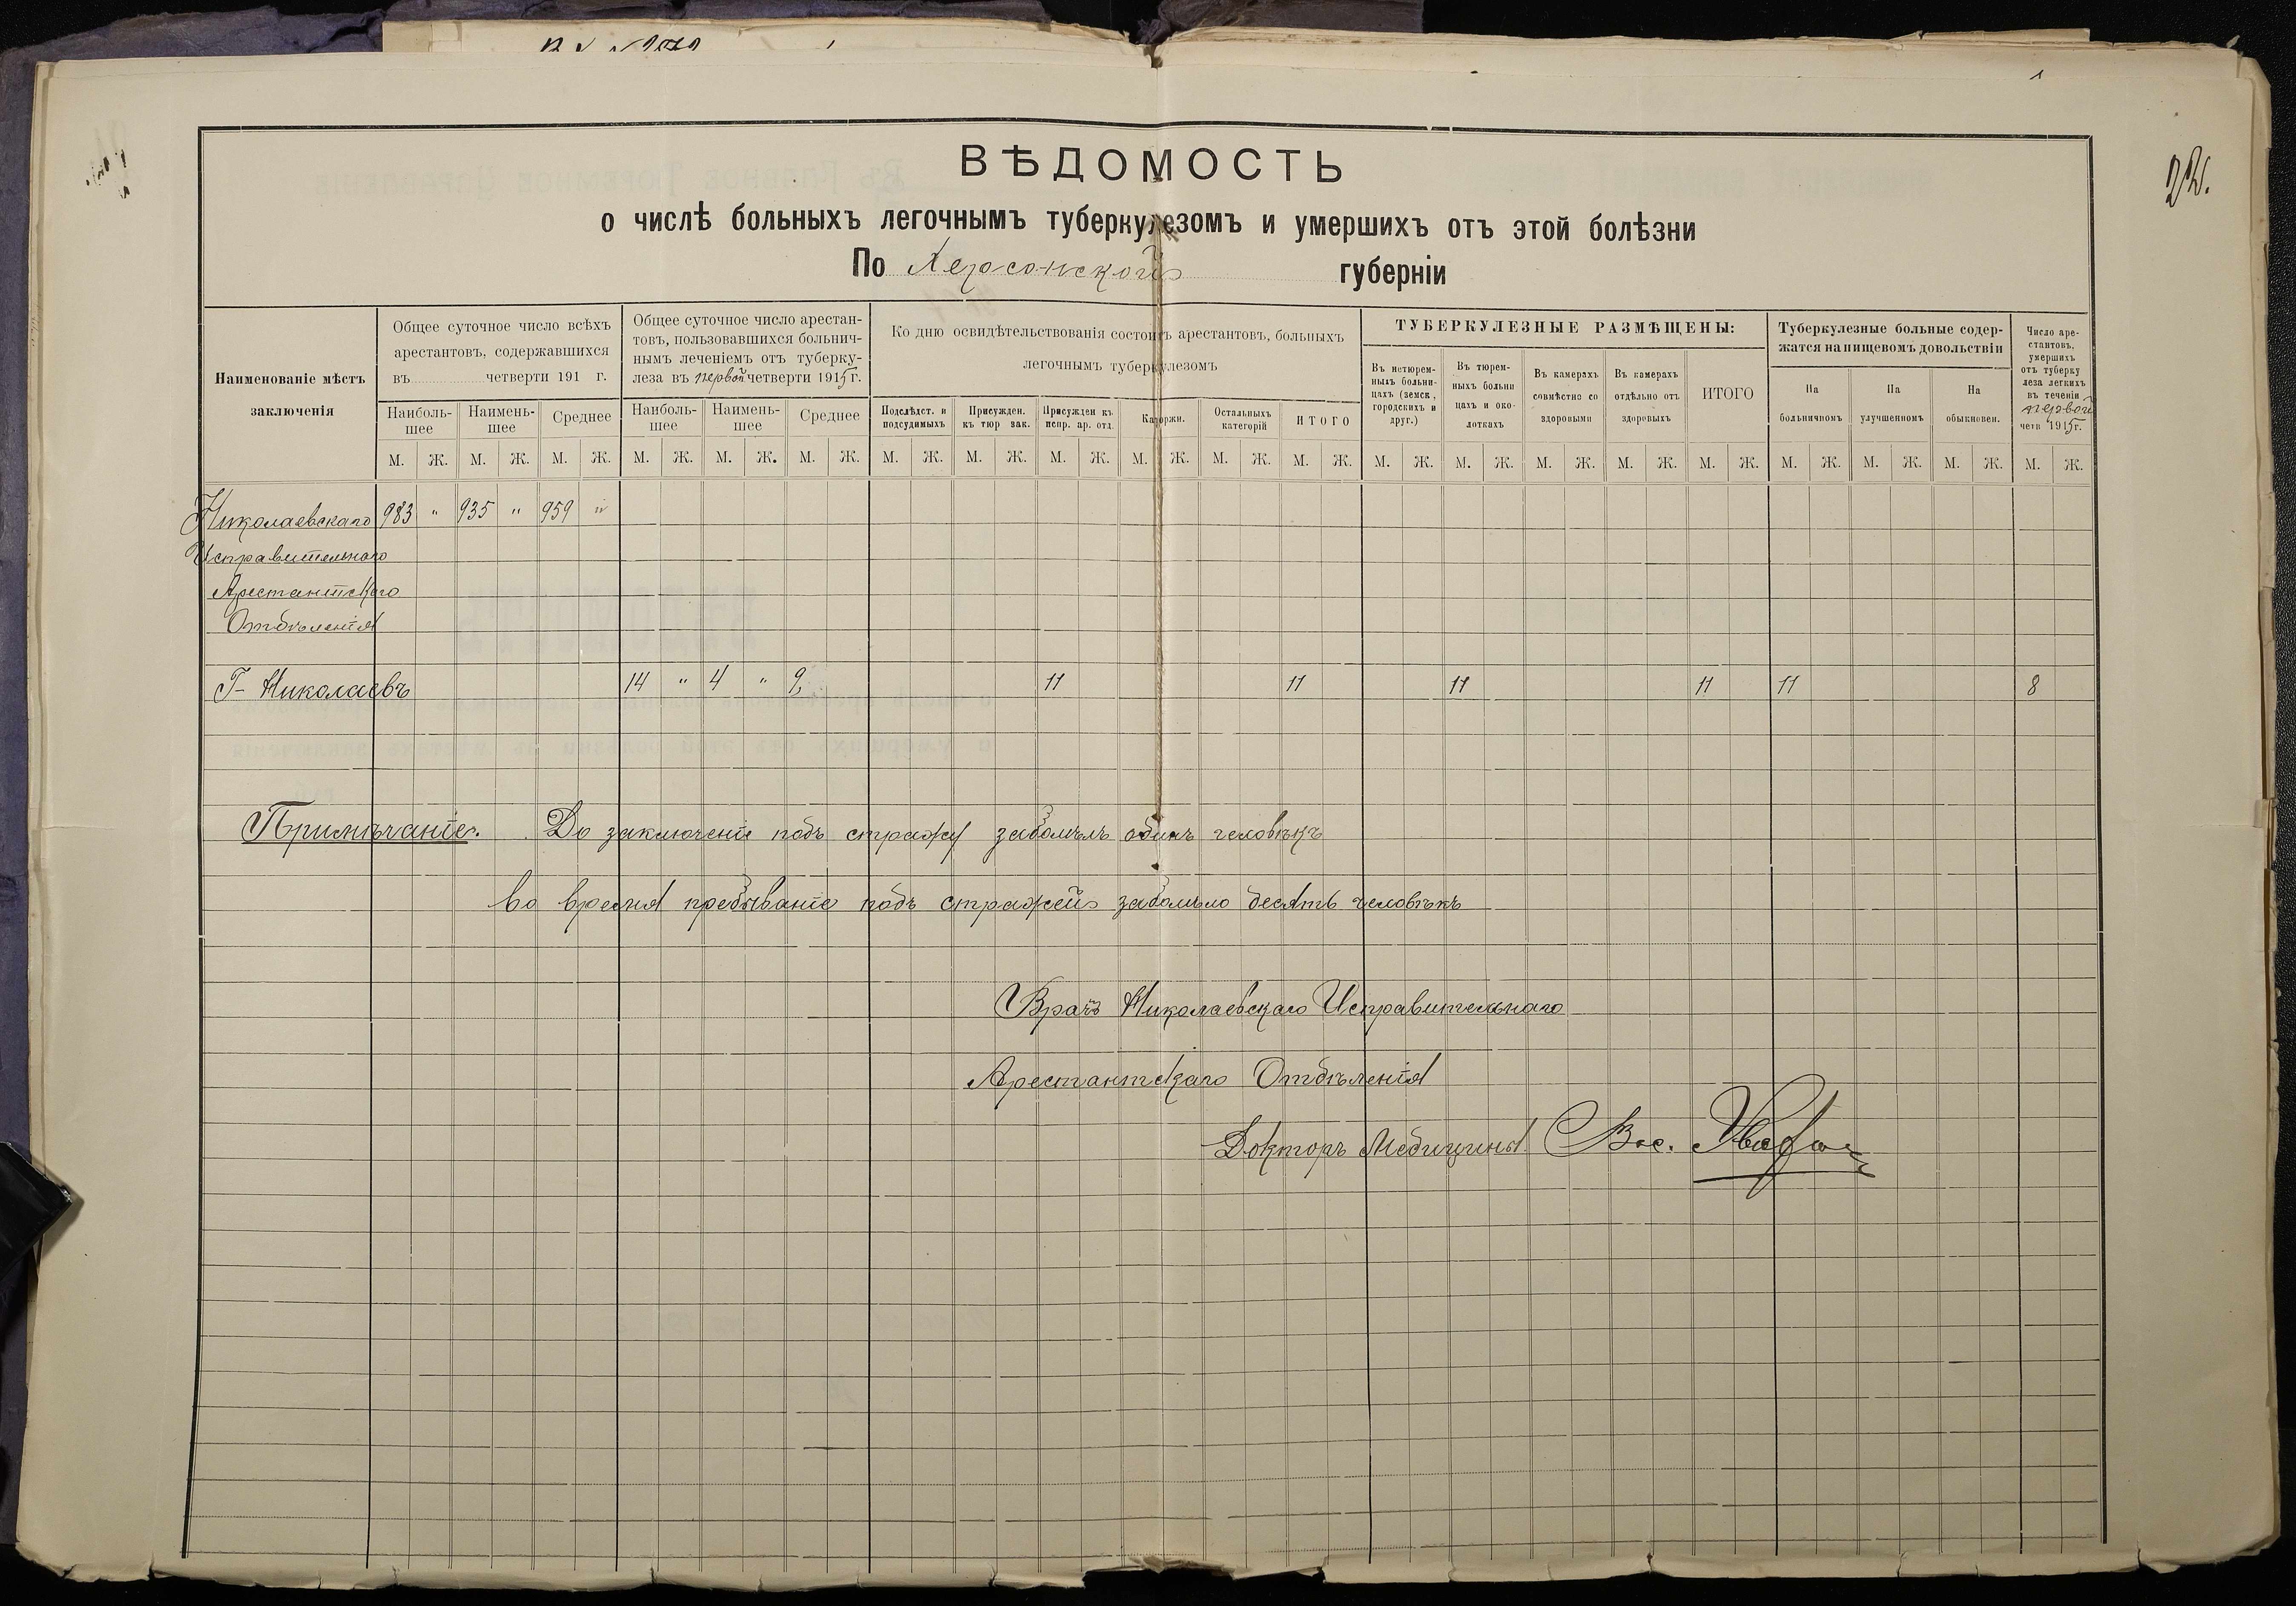 ВѢДОМОСТЬ
о числѣ больныхъ легочнымъ туберкулезомъ и умершихъ отъ этой болѣзни
По Херсонской губерніи
Наименованіе мѣстъ
заключенія
Общее суточное число всѣхъ
арестантовъ, содержавшихся
въ четверти 191 г.
Наиболь-
шее
Наимень-
шее
Среднее
Общее суточное число арестан-
товъ, пользовавшихся больнич-
нымъ леченіемъ отъ туберку-
леза въ первой четверти 1915 г.
Наиболь-
шее
Наимень-
шее
Среднее
Ко дню освидѣтельствованія состоитъ арестантовъ, больныхъ
легочнымъ туберкулезомъ
Подслѣдст. и
подсудимыхъ
Присужден.
къ тюр зак.
Присужден къ
испр. ар. отд.
Каторжн.
Остальныхъ
категорій
ИТОГО
ТУБЕРКУЛЕЗНЫЕ РАЗМѢЩЕНЫ:
Въ нетюрем-
ныхъ больни-
цахъ (земск,
городскихъ и
друг.)
Въ тюрем-
ныхъ больни
цахъ и око-
лоткахъ
Въ камерахъ
совмѣстно со
здоровыми
Въ камерахъ
отдѣльно отъ
здоровыхъ
ИТОГО
Туберкулезные больные содер-
жатся на пищевомъ довольствіи
На
больничномъ
На
улучшенномъ
На
обыкновен.
Число аре-
стантовъ,
умершихъ
отъ туберку
леза легкихъ
въ теченіи
первой
четв 1915 г.
М. Ж. М. Ж. М. Ж. М. Ж. М. Ж. М. Ж. М. Ж. М. Ж. М. Ж. М. Ж. М. Ж. М. Ж. М. Ж. М. Ж. М. Ж. М. Ж. М. Ж. М. Ж. М. Ж. М. Ж. М. Ж.
Николаевскаго 983 " 935 " 959 "
Исправительнаго
Арестантскаго
Отдѣленія
Г- Николаевъ 14 " 4 " 9, 11 11 11 11 11 8
Примѣчаніе. До заключеніе подъ стражу заболѣлъ одинъ человѣкъ
во время пребываніе подъ стражей заболѣло десять человѣкъ
Врачъ Николаевскаго Исправительнаго
Арестантскаго Отдѣленія
Докторъ Медицины Вас.